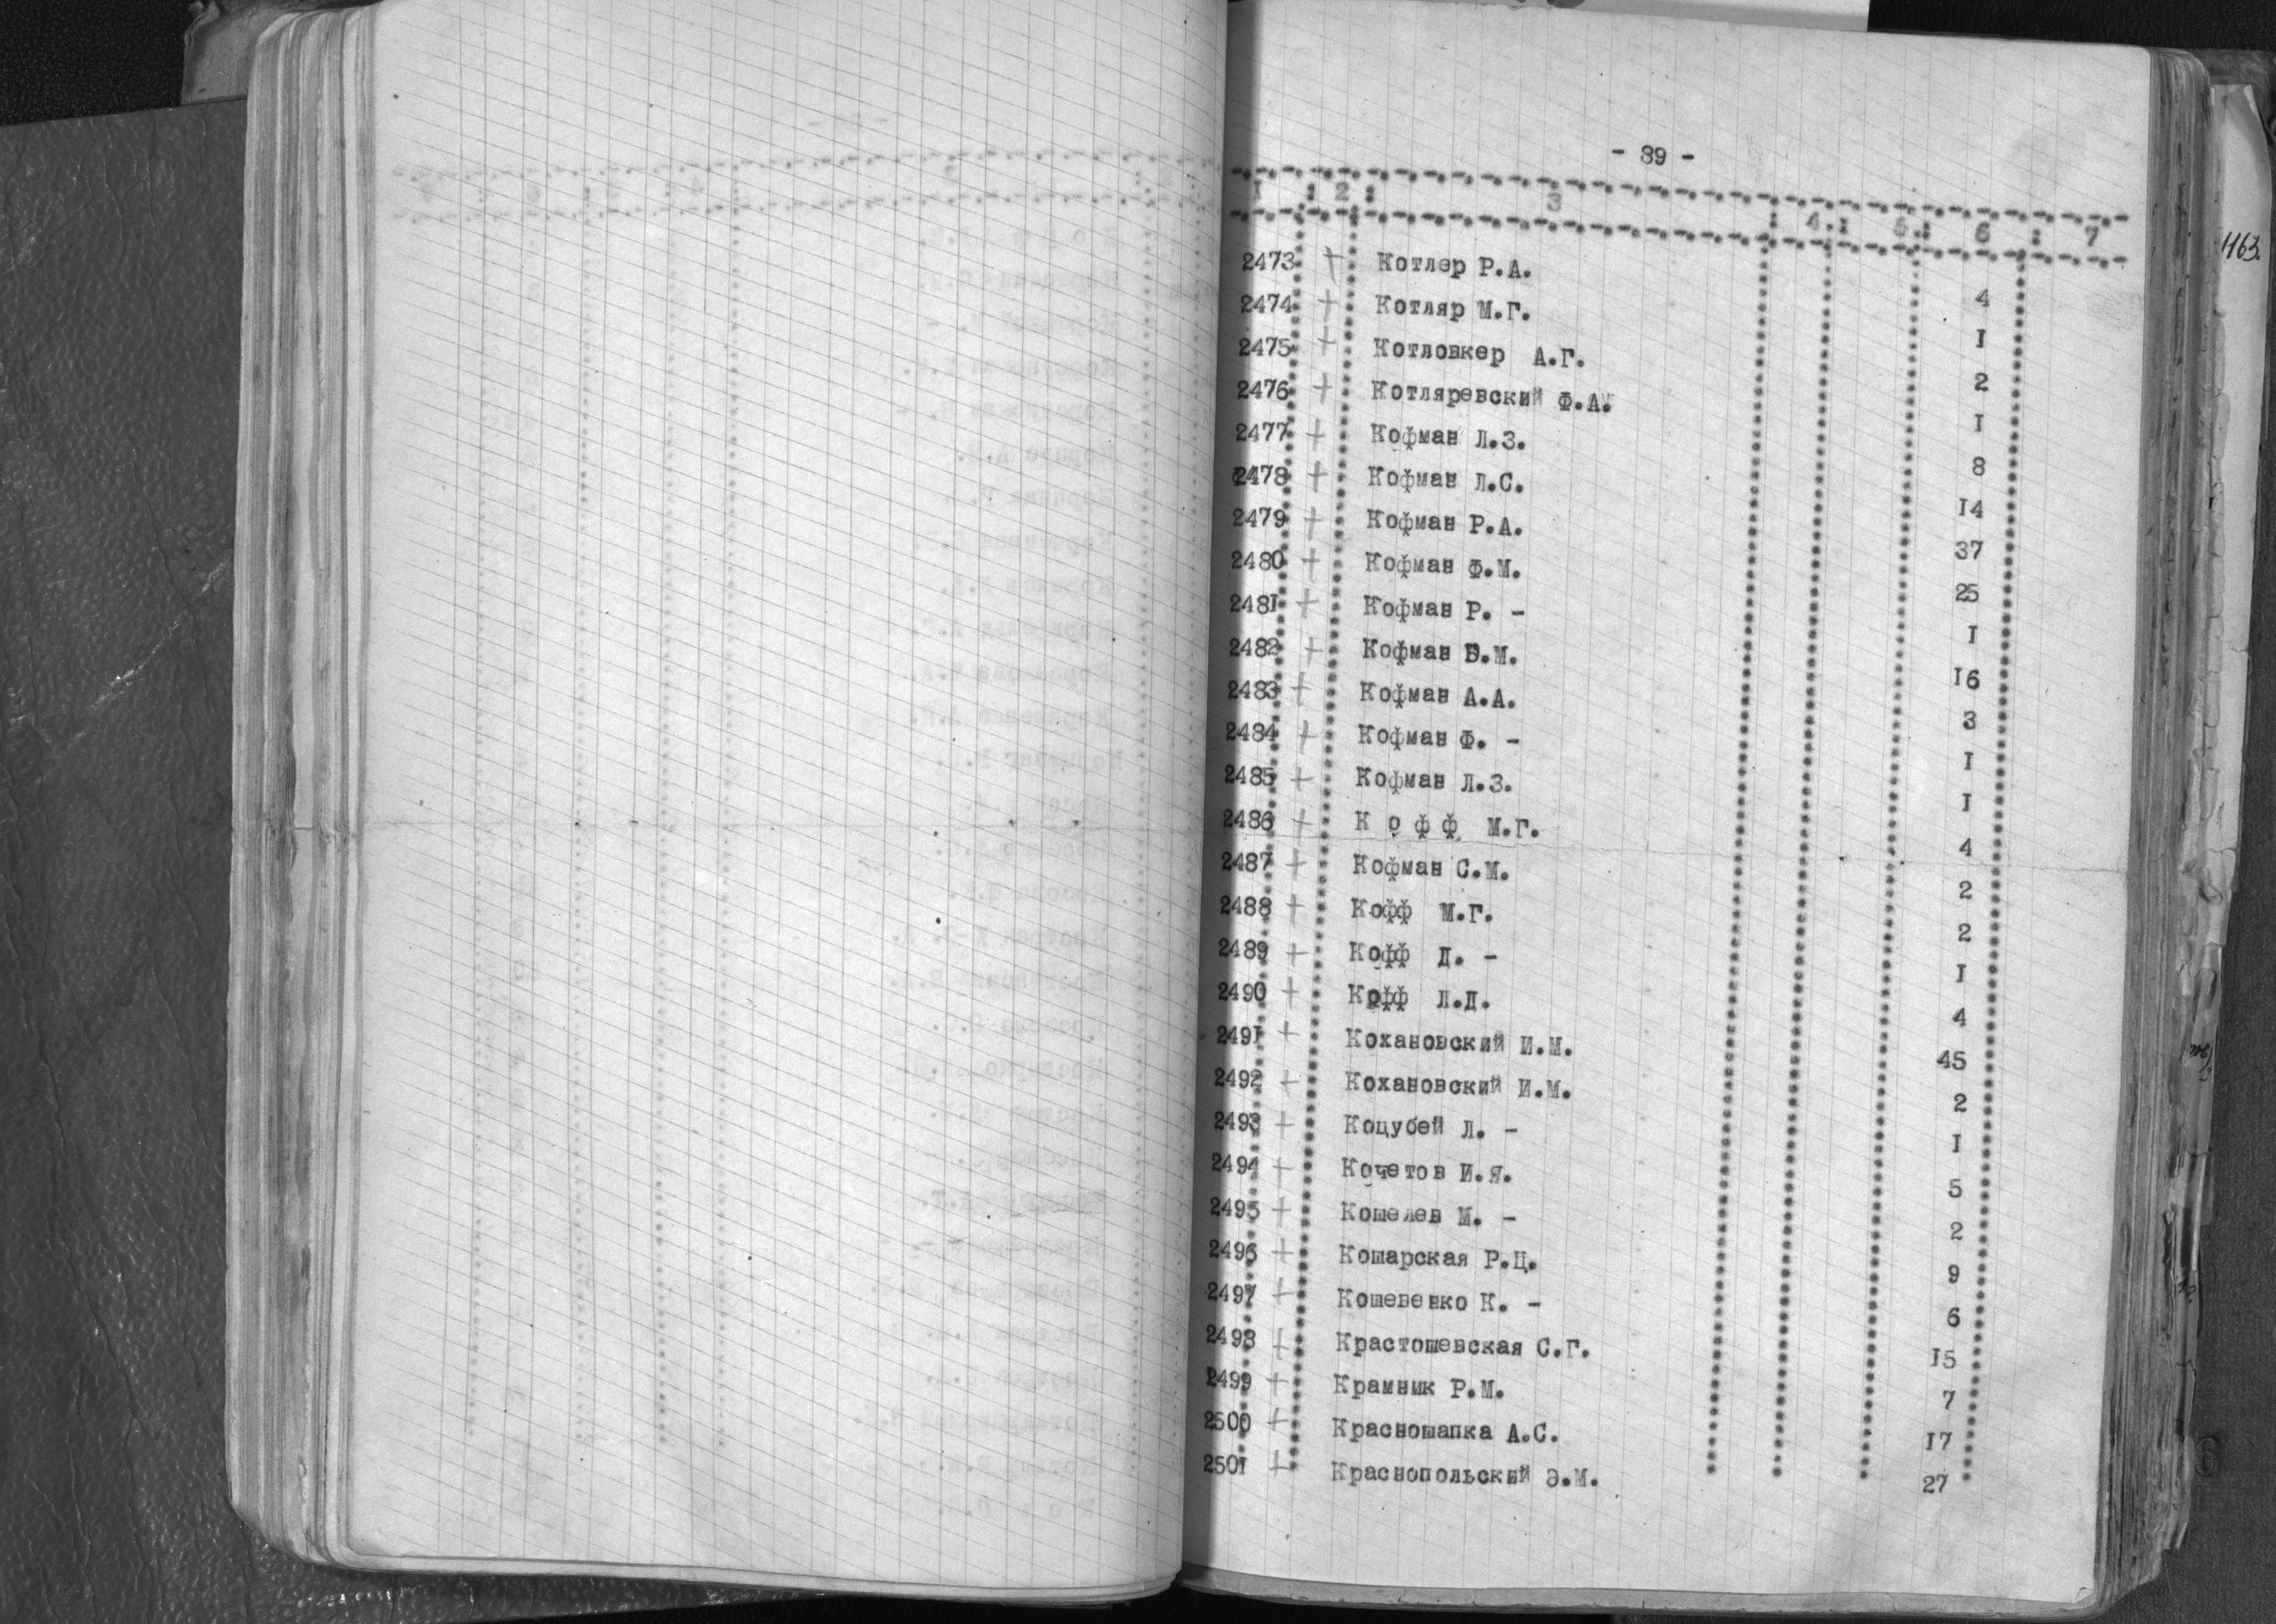 - 89 -
1 : 2 : 3 : 4 : 5 : 6 : 7
1163.
2473 + Котлер Р.А. 4
2474 + Котляр М.Г. I
2475 + Котловкер А.Г. 2
2476 + Котляревский Ф.А. I
2477 + Кофман Л.З. 8
2478 + Кофман Л.С. I4
2479 + Кофман Р.А. 37
2480 + Кофман Ф.М. 25
248I + Кофман Р. - I
2482 + Кофман Б.М. I6
2483 + Кофман А.А. 3
2484 + Кофман Ф. - I
2485 + Кофман Л.З. I
2486 + К о ф ф М.Г. 4
2487 + Кофман С.М. 2
2488 + Кофф М.Г. 2
2489 + Кофф Д. - I
2490 + Кофф Л.Д. 4
249I + Кохановский И.М. 45
2492 + Кохановский И.М. 2
2493 + Коцубей Л. - I
2494 + Кочетов И.Я. 5
2495 + Кошелев М. - 2
2496 + Кошарская Р.Ц. 9
2497 + Кошевенко К. - 6
2498 + Крастошевская С.Г. I5
2499 + Крамник Р.М. 7
2500 + Красношапка А.С. I7
250I + Краснопольский Э.М. 27